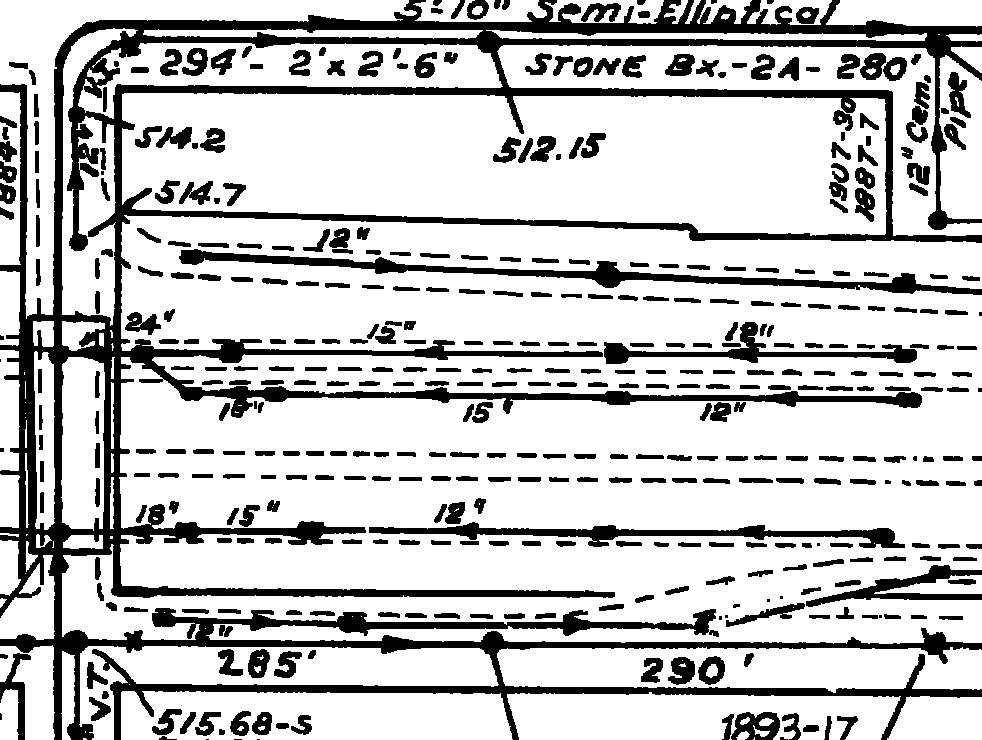 5'-10" Semi-Elliptical
294'- 2'x 2'-6"
STONE Bx.-2A- 280'
V.T.
12"
514.2
514.7
512.15
1907-30
1887-7
12" Cem.
Pipe
1884-1
12"
24"
15"
12"
18"
15"
12"
18"
15"
12"
12"
285'
290'
V.T.
515.68-S
1893-17